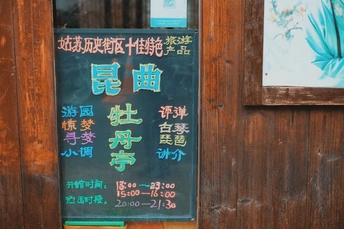 姑苏历史街区十佳特色旅游产品
昆曲
牡丹亭
游园
惊梦
寻梦
小调
评弹
古琴
琵琶
讲介
开馆时间：
13:00——23:00
15:00——16:00
20:00——21:30